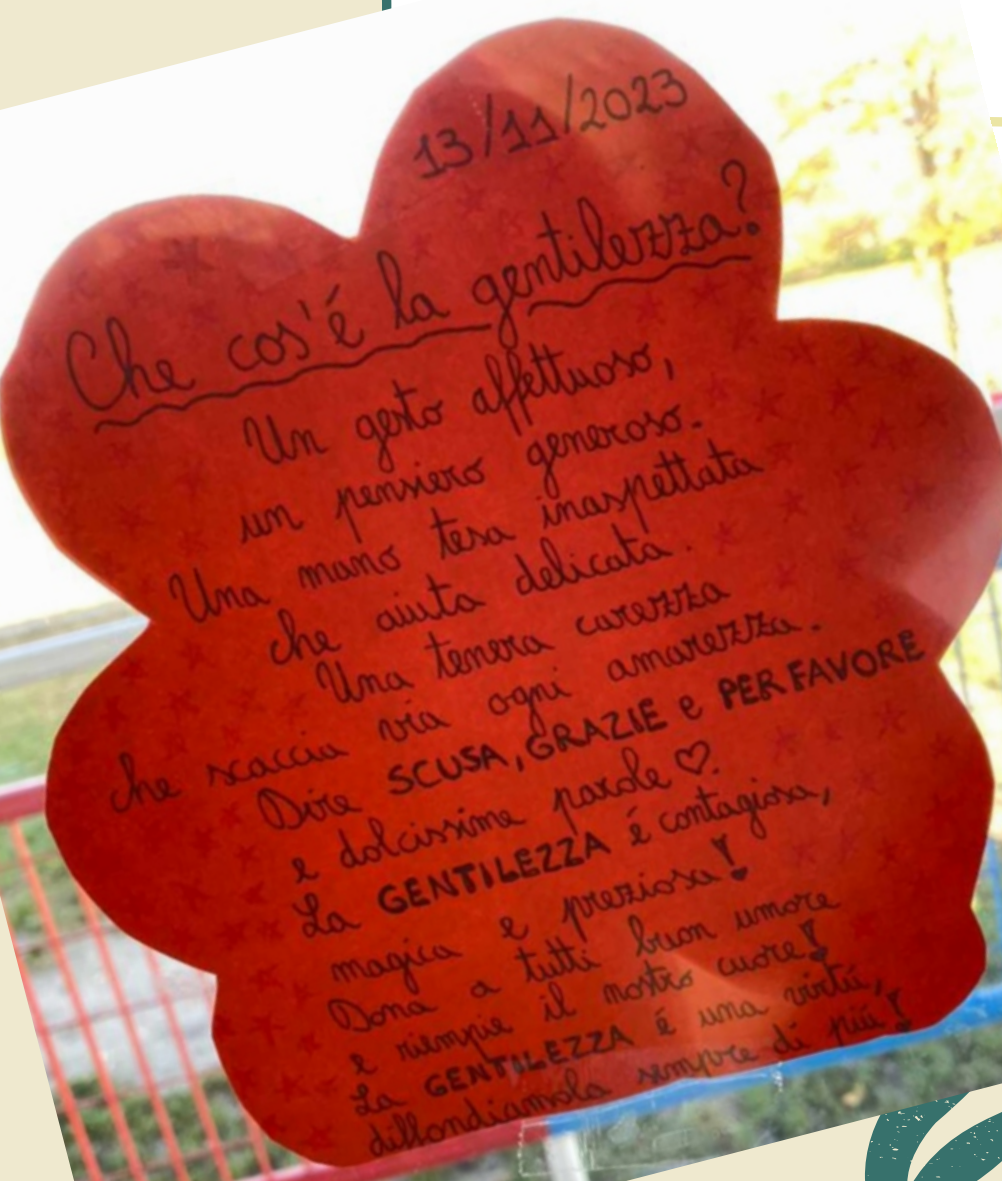 13/11/2023
Che cos'é la gentilezza?
Un gesto affettuoso,
un pensiero generoso.
Una mano tesa inaspettata
che aiuta delicata.
Una tenera carezza
che scaccia via ogni amarezza.
Dire SCUSA, GRAZIE e PER FAVORE
e dolcissime parole ♡.
La GENTILEZZA é contagiosa,
magica e preziosa!
Dona a tutti buon umore
e riempie il nostro cuore!
La GENTILEZZA é una virtú,
diffondiamola sempre di piú!